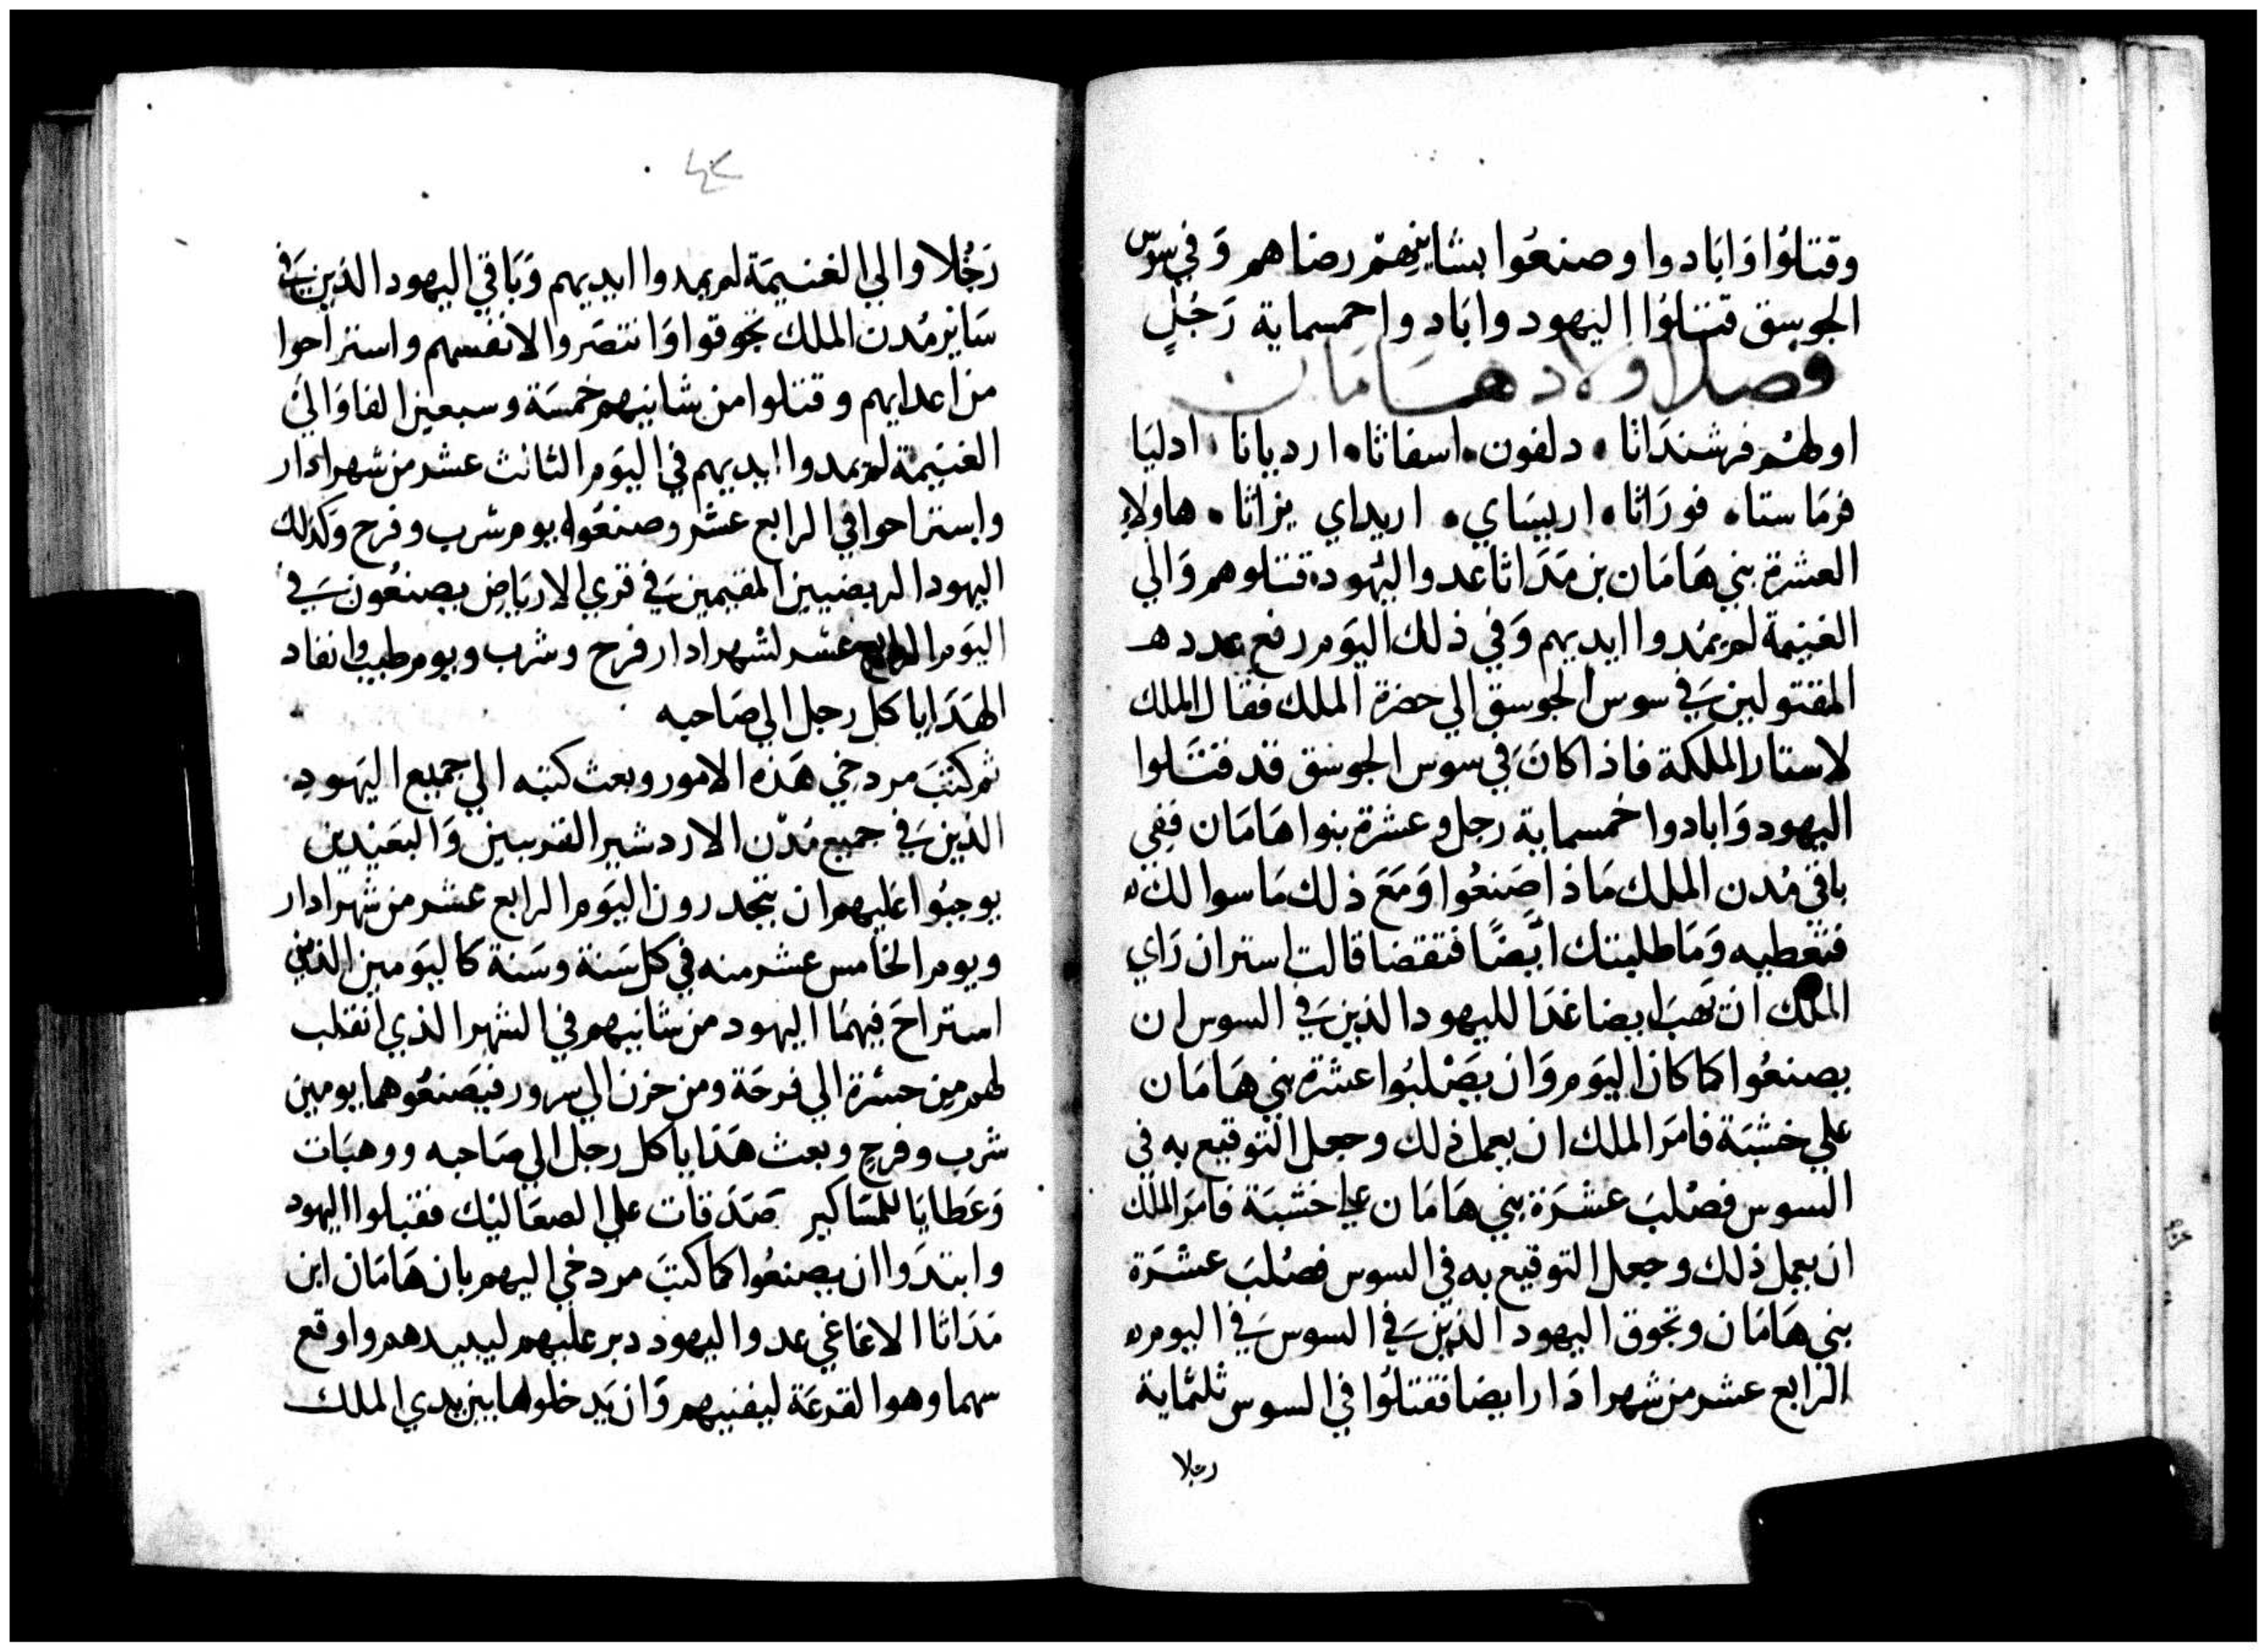 وقتلوا وابادوا وصنعوا بشانيهم رضاهم وفي سوس
الجوسق قتلوا اليهود وابادوا خمسماية رجل
فصل اولاد هامان
اولهم فرشنداثا . دلفون . اسفاثا . ارديانا . ادليا
فرماستا . فوراثا . اريساي . اريداي يزاثا . هاولاء
العشرة بني هامان بن مداثا عدو اليهود قتلوهم والي
الغنيمة لم يمدوا ايديهم وفي ذلك اليوم رفع عدده
المقتولين في سوس الجوسق الي حضرة الملك فقال الملك
لاستار الملكة فاذا كان في سوس الجوسق قد قتلوا
اليهود وابادوا خمسماية رجل وعشرة بنوا هامان ففي
باقي مدن الملك ماذا صنعوا ومع ذلك ما سوالك
فتعطيه وما طلبتك ايضا فتقضا قالت استر ان راي
الملك ان تهب ايضا غدا لليهود الذين في السوس ان
يصنعوا كما كان اليوم وان يصلبوا عشرة بني هامان
علي خشبة فامر الملك ان يعمل ذلك وجعل التوقيع به في
السوس فصلب عشرة بني هامان علي خشبة فامر الملك
ان يعمل ذلك وجعل التوقيع به في السوس فصلب عشرة
بني هامان وتجوق اليهود الذين في السوس في اليوم
الرابع عشر من شهر ادار ايضا فقتلوا في السوس ثلثماية
رجلا
رجلا والي الغنيمة لم يمدوا ايديهم وباقي اليهود الذين في
ساير مدن الملك تجوقوا وانتصروا لانفسهم واستراحوا
من اعدايهم وقتلوا من شانيهم خمسة وسبعين الفا والي
الغنيمة لم يمدوا ايديهم في اليوم الثالث عشر من شهر ادار
واستراحوا في الرابع عشر وصنعوه يوم شرب وفرح وكذلك
اليهود الربضيين المقيمين في قري الارباض يصنعون في
اليوم الرابع عشر لشهر ادار فرح وشرب ويوم طيب وانفاد
الهدايا كل رجل الي صاحبه
ثم كتب مردخي هذه الامور وبعث كتبه الي جميع اليهود
الذين في جميع مدن الاردشير القريبين والبعيدين
يوجبوا عليهم ان يتجددون اليوم الرابع عشر من شهر ادار
ويوم الخامس عشر منه في كل سنة وسنة كاليومين الذين
استراح فيهما اليهود من شانيهم في الشهر الذي انقلب
لهم من حسرة الي فرحة ومن حزن الي سرور فيصنعوهما يومين
شرب وفرح وبعث هدايا كل رجل الي صاحبه ووهبات
وعطايا للمساكير صدقات علي الصعاليك فقبلوا اليهود
وابتدوا ان يصنعوا كما كتب مردخي اليهم بان هامان ابن
مداثا الاغاغي عدو اليهود دبر عليهم ليبيدهم واوقع
سهما وهو القرعة ليفنيهم وان يدخلوها بين يدي الملك